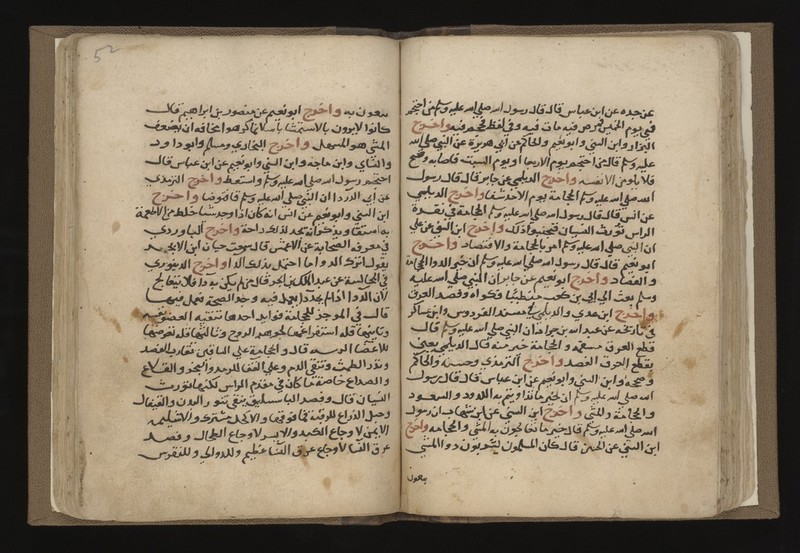 عن جده عن ابن عباس قال قال رسول الله صلى الله عليه وسلم من احتجم
في يوم الخميس فمرض فيه مات فيه وفي لفظ فحم فيه واخرج
البزار وابن السني وابو نعيم والحاكم عن ابي هريرة عن النبي صلى الله
عليه وسلم قال من احتجم يوم الاربعا او يوم السبت فاصابه وضح
فلا يلومن الا نفسه واخرج الديلمي عن جابر قال قال رسول
الله صلى الله عليه وسلم الحجامة يوم الاحد شفا واخرج الديلمي
عن انس قال قال رسول الله صلى الله عليه وسلم الحجامة في نقرة
الراس تورث النسيان فتجنبوا ذلك واخرج ابن السني عن علي
ان النبي صلى الله عليه وسلم امر بالحجامة والافتصاد واخرج
ابو نعيم قال قال رسول الله صلى الله عليه وسلم ان خير الدوا الحجامة
والفصاد واخرج ابو نعيم عن جابر ان النبي صلى الله عليه
وسلم بعث الى ابي بن كعب متطببا فكواه وفصد العرق
واخرج ابن عدي والديلمي في مسند الفردوس وابن عساكر
في تاريخه عن عبد الله بن جراد ان النبي صلى الله عليه وسلم قال
قطع العرق مسقمة والحجامة خير منه قال الديلمي يعني
بقطع العرق الفصد واخرج الترمذي وحسنه والحاكم
وصححه وابن السني وابو نعيم عن ابن عباس قال قال رسول
الله صلى الله عليه وسلم ان خير ما تداويتم به اللدود والسعوط
والحجامة والمشي واخرج ابن السني عن ان رسول
الله صلى الله عليه وسلم قال خير ما تعالجون به المشي والحجامه واخرج
ابن السني عن الحسن قال كان المسلمون يتداوون ذو المشي
يتعول
52
به واخرج ابو نعيم عن منصور بن ابراهيم قال
كانوا لا يرون بالاستمشا باسا وانما كرهوا مخافة ان يضعف
المشي هو المسهل واخرج البخاري ومسلم وابو داود
والنساي وابن ماجه وابن السني وابو نعيم عن ابن عباس قال
احتجم رسول الله صلى الله عليه وسلم واستعط واخرج الترمذي
عن ابي الدردا ان النبي صلى الله عليه وسلم قا فتوضا واخرج
ابن السني وابو نعيم عن انس انه كان اذا وجد شيا خلط من الاطعمة
به استقا ويذكر انه يجد لذلك راحة واخرج الباوردي
في معرفه الصحابة عن الاعمش قال سمعت حيان ابن الابجر
يقول اترك الدوا ما احتمل بدنك الدا واخرج الدينوري
في المجالسة عن عبد الملك بن ابجر قال من لم يكن به دا فلا يتعالج
لان الدوا اذا لم يجد دا يعمل فيه وجد الصحة فعمل فيها
قال في الموجز للحجامة فوايد احدها تنقية العضو نفسه
وثانيها قلة استفراغها لجوهر الروح وثالثها قلة تعرضها
للاعضا الرئيسه قال والحجامة على الساقين تقارب الفصد
وتدر الطمث وتنقي الدم وعلى القفا للرمد والبخر والقلاع
والصداع خاصة ما كان في مقدم الراس لكنها تورث
النسيان قال وفصد الباسليق ينقي تنور البدن والقيفال
وحبل الذراع للرقبة فما فوقها والاكحل مشترك والاسيلم
الايمن لاوجاع الكبد والايسر لاوجاع الطحال وفصد
عرق النسا لاوجاع عرق النسا عظيم وللدوالي وللنقرس